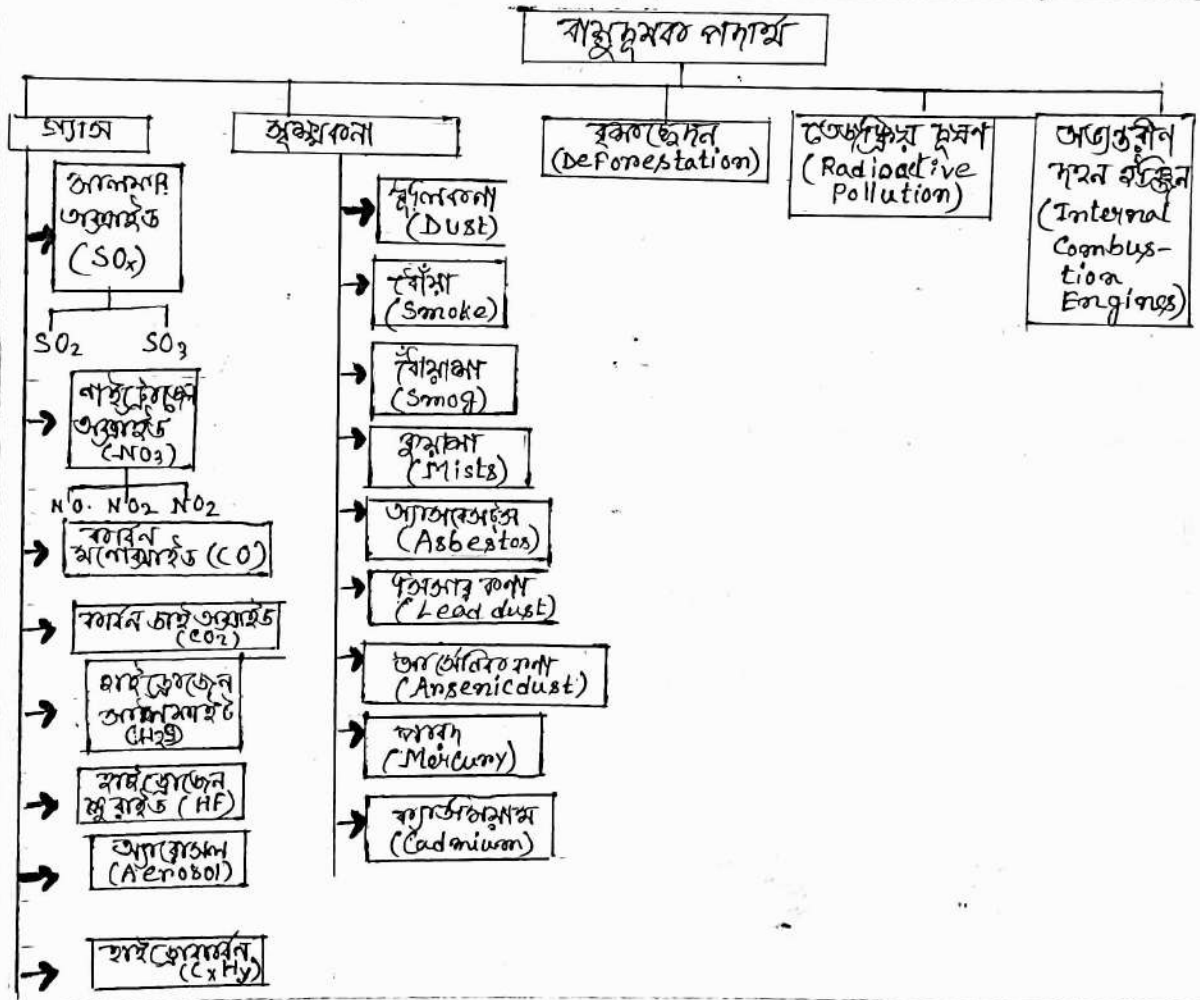 বায়ুদূষক পদার্থ
গ্যাস
সালফার
অক্সাইড
(SOx)
SO2 SO3
নাইট্রোজেন
অক্সাইড
(NO3)
NO. NO2 NO2
কার্বন
মনোক্সাইড (CO)
কার্বন ডাই অক্সাইড
(CO2)
হাইড্রোজেন
সালফাইট
(H2S)
হাইড্রোজেন
ফ্লুরাইড (HF)
অ্যারোসল
(Aerosol)
হাইড্রোকার্বন
(CxHy)
সূক্ষ্মকনা
ধূলিকনা
(Dust)
ধোঁয়া
(Smoke)
ধোঁয়াশা
(Smog)
কুয়াশা
(Mists)
অ্যাসবেসটস
(Asbestos)
সিসার কণা
(Lead dust)
আর্সেনিক কণা
(Arsenicdust)
পারদ
(Mercury)
ক্যাডমিয়াম
(Cadmium)
বৃক্ষচ্ছেদন
(Deforestation)
তেজষ্ক্রিয় দূষণ
(Radioactive
Pollution)
অভ্যন্তরীন
দহন ইঞ্জিন
(Internal
Combus-
tion
Engines)